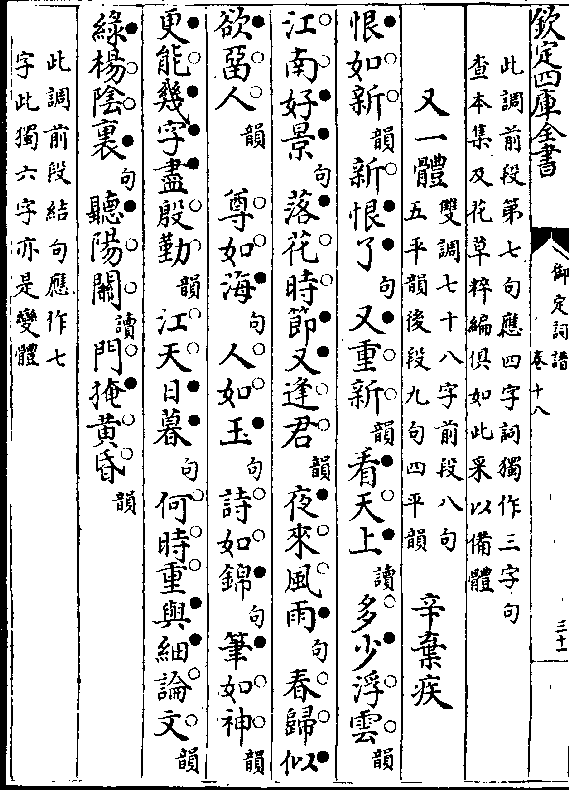 欽定四庫全書
御定詞譜
卷十八
三十一
此調前段第七句應四字詞獨作三字句
查本集及花草粹編俱如此采以備體
又一體 雙調七十八字前段八句
五平韻後段九句四平韻 辛棄疾
恨如新韻新恨了句又重新韻看天上讀多少浮雲韻
江南好景句落花時節又逢君韻夜來風雨句春歸似
欲留人韻 尊如海句人如玉句詩如錦句筆如神韻
更能幾字盡殷勤韻江天日暮句何時重與細論文韻
綠楊陰裏句聽陽關讀門掩黃昏韻
此調前段結句應作七
字此獨六字亦是變體